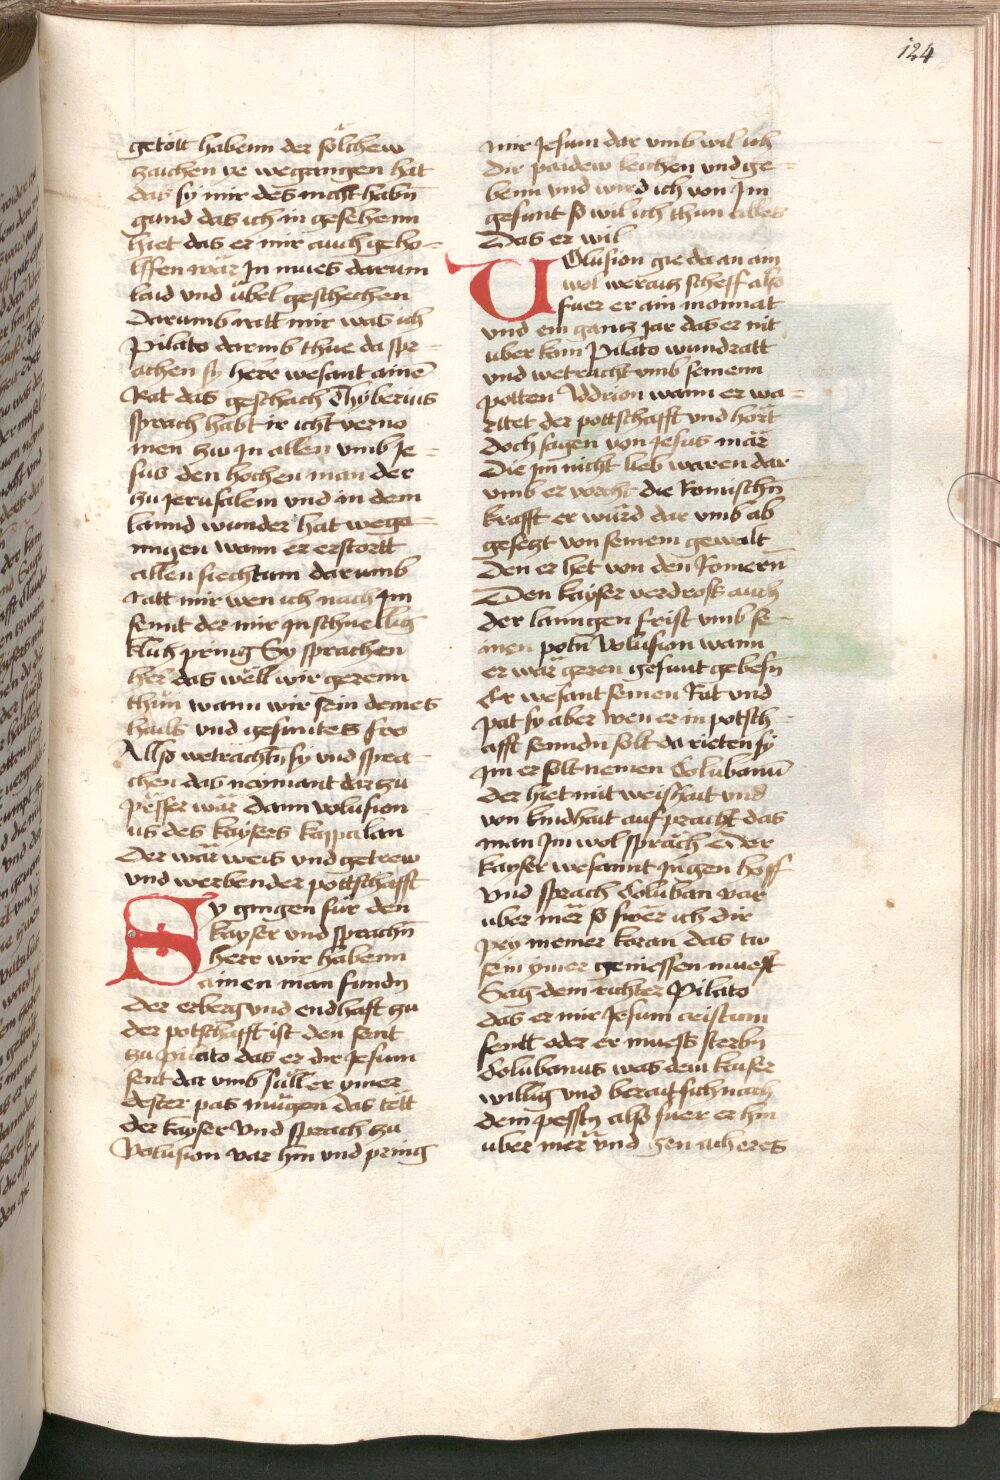 124
getött habenn der sölchew
zaichen ye wegangen hat
das sy mir des nicht habn̄
gund das ich in gesehenn
hiet das er mir auch geho-
lffen wär Jn mues darum
laid und übel geschechen
Darumb ratt mir was ich
Pilato darmb thue da spr-
achen sy herr wesant ainē
Rat das geschach Thyberius
sprach habt ir icht verno
men zw Jn allen vmb Je-
sus den hochen man der
zu Jerusalem und in dem
lannd wunder hat wega-
nngen wann er erstortt
allen siechtum darumb
ratt mir wen ich nach Jm
sennt der mir Jn schnellig
klich pring Sy sprachen
her das well wir gerenn
thün wann wir sein deines
hails und gesuntes fro
Allso wetrachtn̄ sy vnd spra-
chen das neymant dar zu
pesser wär dann volusion-
us des kaysers kappalan
Der wär weis und getrew
und werbender pottschafft
Sy gingen für den
kayser und sprachn̄
herr wir habenn
ainen man fundn
der erberg und endhaft zu
der potschafft ist den sent
zu pilato das er dir Jesum
sent dar vmb süll er ymer
dester pas mügen das tett
der kayser Vnd sprach zu
Volusion var hin vnd pring
mir Jesum dar vmb wil ich
dir paidew leichen und ge-
benn und wird ich von Jm
gesunt so wil ich thun alles
Das er wil
Volusion gie da an ain
wol weraitz scheff also
fuer er ain monnat
vnd ein gantz jar das er nit
uber kam Pilato wundratt
und wetracht vmb seinenn
potten Addrion wann er wa-
rttet der pottschafft und hört
doch sagen von Jesus mär
Die jm nicht lieb waren dar
vmb er vorcht die Romischn̄
krafft er würd dar vmb ab
gesetzt von seinem gewalt
Den er het von den Romern̄
Den kayser verdross auch
der lanngen frist vmb se-
inen potn̄ Volusion wann
er wär geren gesunt gebesn
Er wesant seinen Rat und
pat sy aber wen er in potsch-
afft senndn̄ solt da rieten sy
Jm er solt nemen Columbanū
der hiet mit weishait vnd
von kindhait auf pracht das
man Jm wol spräch Der
kayser wesannt Jn gen hoff
vnd sprach Columban var
uber mer so swer ich dir
pey meiner koran das tw
sein ymer geniessen muest
Sag dem richter Pilato
das er mir Jesum cristum
sentt oder er muess sterbn̄
Columbanus was dem kaiser
willig und berait sich nach
dem pesstn̄ also fuer er hin
uber mer vnd gen acheres